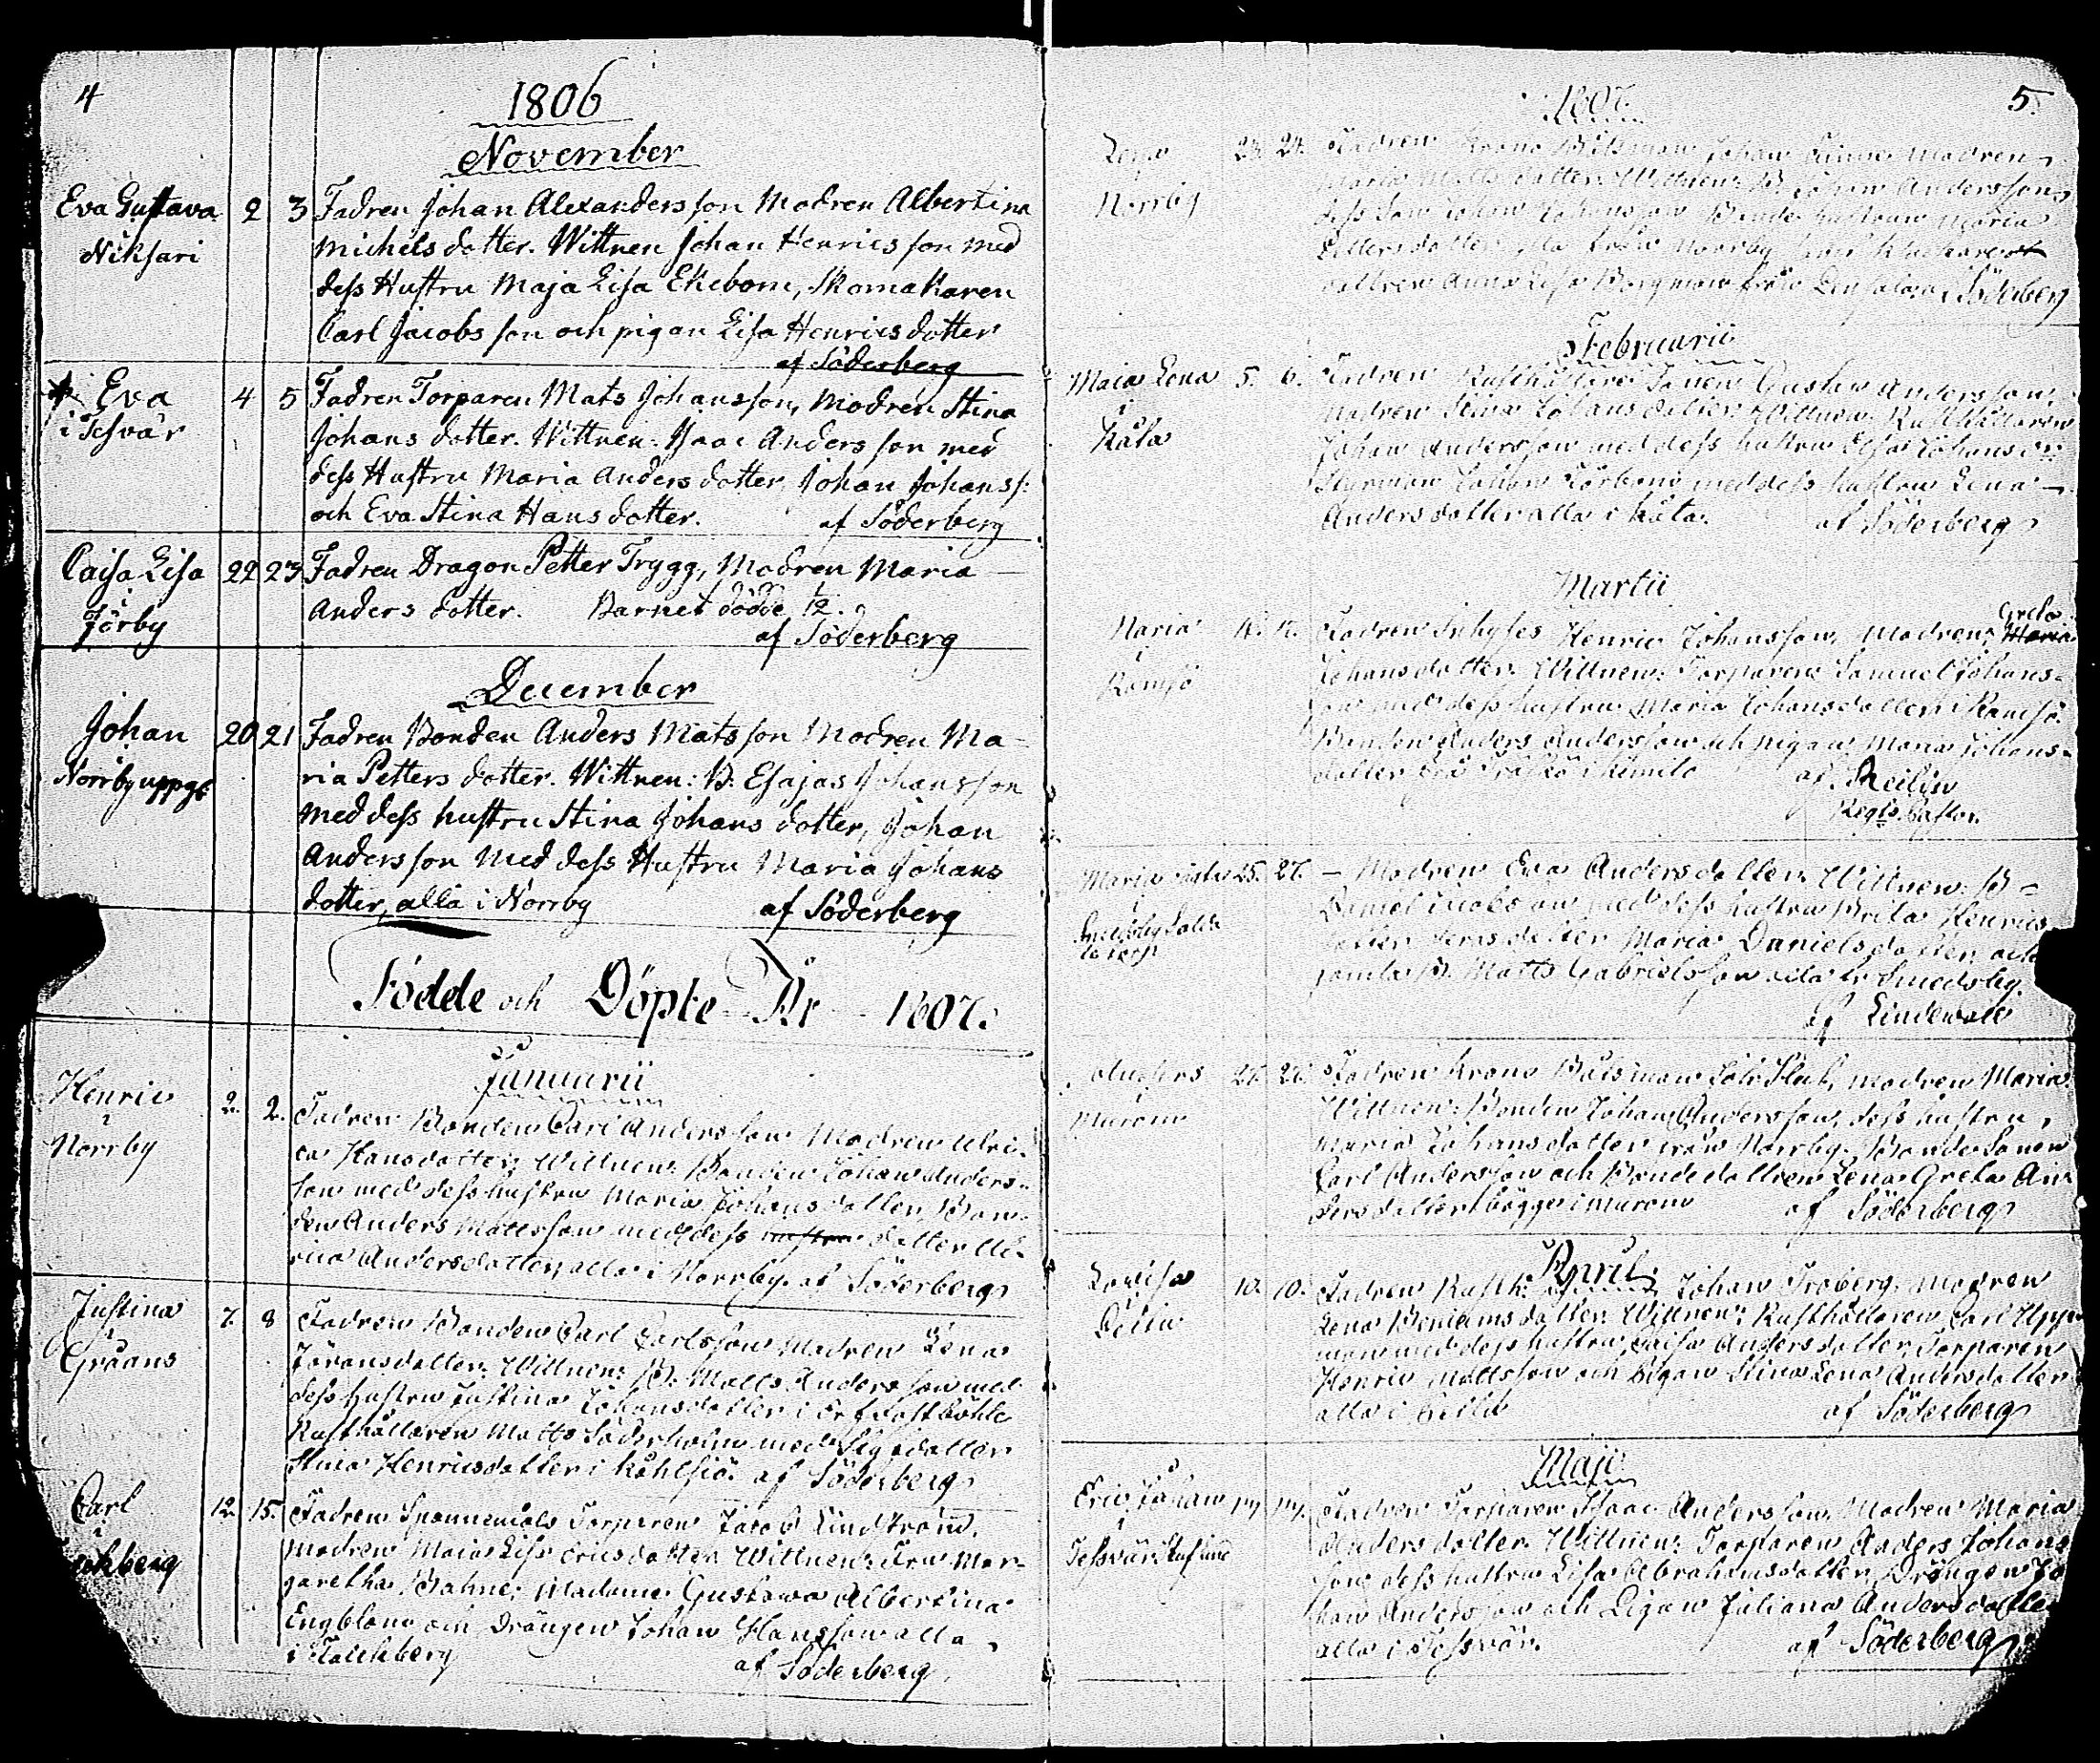 4
1806
November
Eva Gustava 2 3 Fadren Johan Alexandersson Modren Albertina
Niksari Michelsdotter. Wittnen Johan Henricsson med
dess Hustru Maja Lisa Ekebom, Skomakaren
Carl Jacobsson och pigan Lisa Henricsdotter
af Söderberg
Eva 4 5 Fadren Torparen Mats Johansson, Modren Stina
i Tesvär Johansdotter. Wittnen: Isaac Andersson med
dess Hustru Maria Andersdotter Johan Johanss:
och Eva Stina Hansdotter. af Söderberg
Caisa Lisa 22 23 Fadren Dragon Petter Trygg, Modren Maria
i Andersdotter. Barnet dödde 1/2.
Jörby af Söderberg
December
Johan 20 21 Fadren Bonden Anders Matsson Modren Ma-
i ria Pettersdotter. Wittnen: B. Esajas Johansson
Norrby uppg: med dess hustru Stina Johansdotter, Johan
Andersson med dess Hustru Maria Johans
dotter, alla i Norrby af Söderberg
Födde och Döpte År 1807.
Januarii
Henric 2. 2. Fadren Bonden Carl Andersson Modren Ulri-
i ca Hansdotter, Wittnen: Bonden Johan Anders-
Norrby son med dess hustru Maria Johansdotter, Bon-
den Anders Mattsson med dess hustru dotter Ul-
rica Andersdotter, alla i Norrby. af Söderberg
Justina 7. 8 Fadren Bonden Carl Carlsson Modren Lena
i Göransdotter. Wittnen: B. Matts Andersson med
Gråans dess hustru Justina Johansdotter i
Rusthållaren Matts Söderholm med dotter
Stina Henricsdotter i Kåhlsiö. af Söderberg
Carl 12. 15. Fadren Torparen Jacob Lindström.
i Modren Maia Lisa Ericsdotter Wittnen: Fru Mar-
garetha Modame Gustava Albertina
Engblom och Drängen Johan Hansson alla
i Falckberg af Söderberg
5.
1807.
Lena 23. 24. Fadren Krono Båtsman Johan Modren
i Maria Mattsdotter. Wittnen: B. Johan Andersson,
Norrby dess Son Johan Johansson Bonde hustrun Maria
Pettersdotter, alla från Norrby samt
dottren Anna Lisa Bergman från af Söderberg
Februarii
Maia Lena 5. 6. Fadren Rusthållare Sonen Gustav Andersson,
i Modren Stina Johansdotter. Wittnen: Rusthållaren
Kåla Johan Andersson med dess hustru Elsa Johansd:
Styrman Johan med dess hustru Lena
Andersdotter alla i Kåla. af Söderberg
Martii
Maria Fadren Inhyses Henric Johansson, Modren: Greta Maria
i Johansdotter. Wittnen: Torparen Samuel Johans-
Ramsö son med dess hustru Maria Johansdotter i Ramsö.
Bonden Anders Andersson och pigan Maria Johans-
dotter från i Kimito af
Regts Pastor.
Maria 25. 27. – Modren Eva Andersdotter. Wittnen: B–
Daniel med dess hustru Brita Henrics
Smedsby dotter deras dotter Maria Danielsdotter, och
B. Matts Gabrielsson alla i Smedsby.
af Lindewall
Fadren Krono Båtsman Modren Maria
i Wittnen: Bonden Johan Andersson, dess hustru
Muronn Maria Johansdotter från Norrby. Bonde Sonen
Carl Andersson och Bondedottren Lena Greta An-
dersdotter bägge i Muronn af Söderberg
April
Lowisa 10. 10. Fadren Rusth: Johan Modren
i Lena Beniamsdotter. Wittnen: Rusthållaren Carl
med dess hustru Caisa Andersdotter, Torparen
Henric Mattsson och Pigan Stina Lena Andersdotter
alla i af Söderberg
Maji
Eric Johan Fadren Torparen Isaac Andersson, Modren Maria
i Andersdotter. Wittnen: Torparen Anders Johans
Tessvär son, dess hustru Lisa Abrahamsdotter, Drängen Jo
han Andersson och Pigan Juliana Andersdotter
alla i Tessvär. af Söderberg